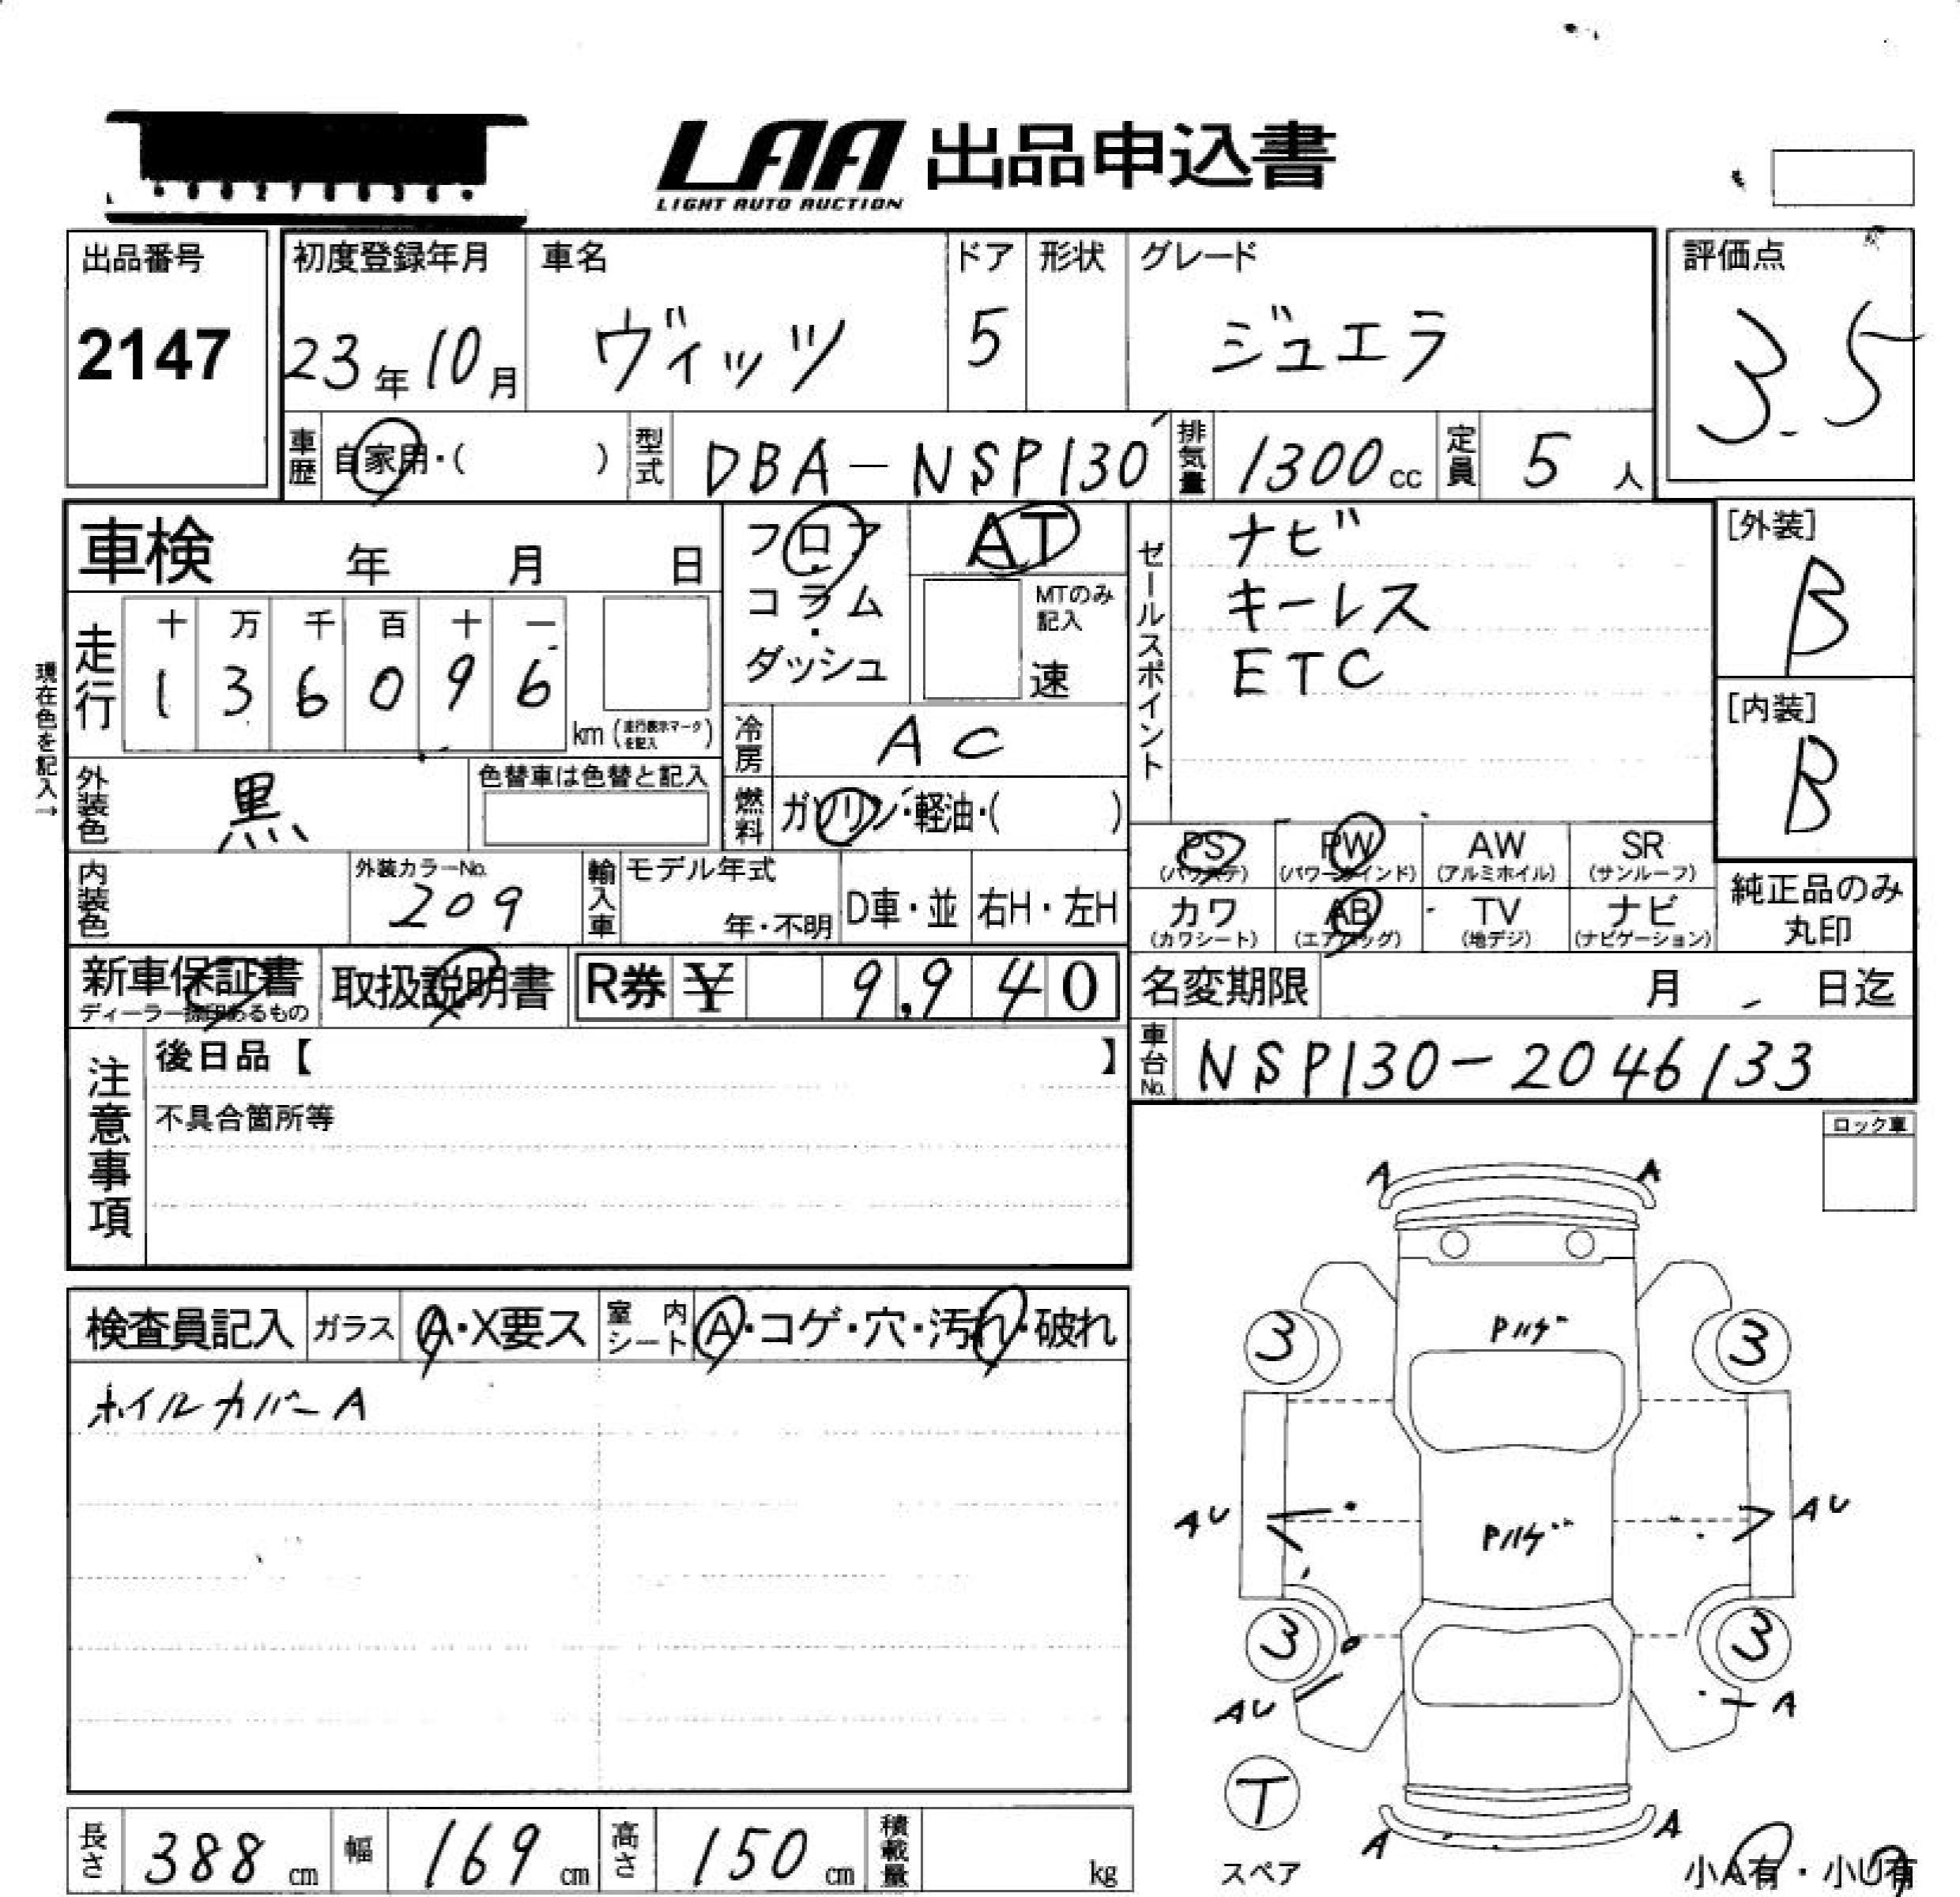 LAA 出品申込書
LIGHT AUTO AUCTION
出品番号
2147
初度登録年月
23年10月
車名
ヴィッツ
ドア
5
形状
グレード
ジュエラ
評価点
3.5
車歴
自家用・( )
型式
DBA-NSP130
排気量
1300cc
定員
5人
車検 年 月 日
フロア
コラム
・
ダッシュ
AT
MTのみ
記入
速
セールスポイント
ナビ
キーレス
ETC
[外装]
B
[内装]
B
現在色を記入→
走行
十 万 千 百 十 一
1 3 6 0 9 6
km (走行表示マークを記入)
冷房
AC
外装色
黒
色替車は色替と記入
燃料
ガソリン・軽油・( )
PS AW SR
(パワステ) (アルミホイル) (サンルーフ)
PW
(パワーウインド)
内装色
外装カラーNo.
209
輸入車
モデル年式
年・不明
D車・並
右H・左H
カワ AB TV ナビ
(カワシート) (エアバッグ) (地デジ) (ナビゲーション)
純正品のみ
丸印
新車保証書
ディーラー捺印あるもの
取扱説明書
R券 ¥ 9,940
名変期限 月 日迄
注意事項
後日品【 】
不具合箇所等
車台No.
NSP130-2046133
ロック車
検査員記入
ガラス
A・X要ス
室内シート
A・コゲ・穴・汚れ・破れ
ホイルカバーA
A A
Pハゲ
3 3
AU AU
Pハゲ
3 3
AU A
T
スペア
A A
小A有・小U有
長さ
388cm
幅
169cm
高さ
150cm
積載量
kg